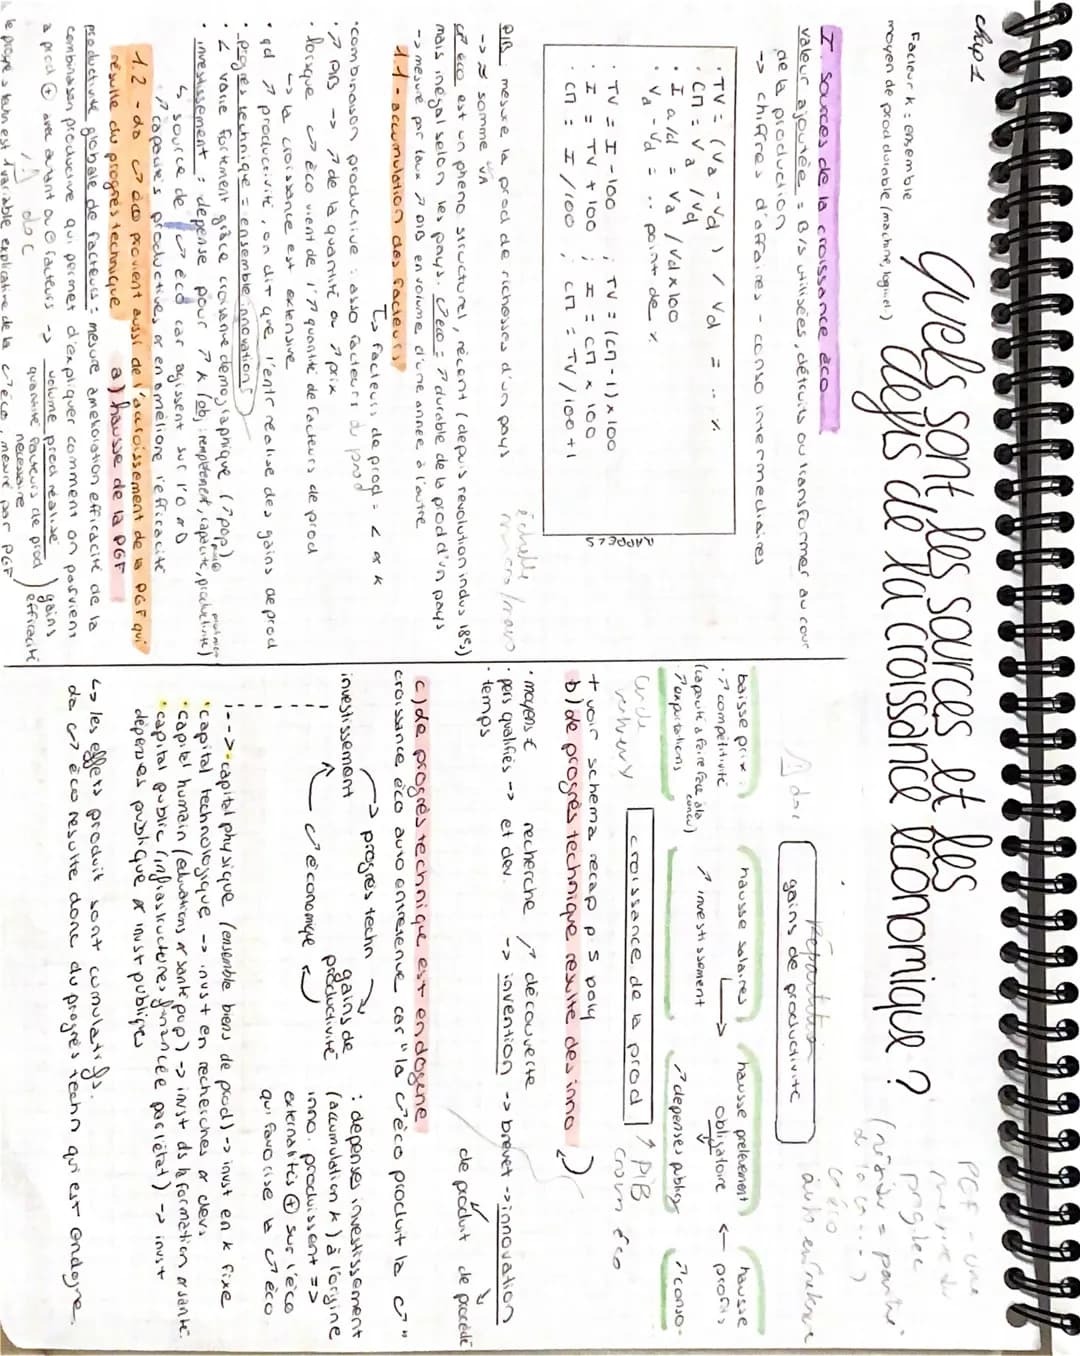 chap 1
Quels sont les sources et les
défis de la croissance économique ?
Facteur k : ensemble
moyen de prod durable (machine, logiciel)
I. Sources de la croissance éco
valeur ajoutée = B/s utilisées, détruits ou transformer au cour
de la production
-> chiffres d'affaires - conso intermédiaires
RAPPELS
. TV = (Va - Vd) / Vd = ... %
. CM = Va / Vd
. I a/d = Va / Vd x 100
. Va - Vd = .. point de %
. TV = I - 100 ; TV = (CM - 1) x 100
. I = TV + 100 ; I = CM x 100
. CM = I / 100 ; CM = TV / 100 + 1
PIB : mesure la prod de richesses d'un pays
-> ≈ somme VA
échelle
micro / macro
c↗ éco est un pheno structurel, récent (depuis revolution indus 18e s)
mais inégal selon les pays. c↗ éco = ↗ durable de la prod d'un pays
-> mesure par taux ↗ PIB en volume d'une année à l'autre
1.1 - accumulation des facteurs
↳ facteurs de prod = L et K
. combinaison productive : asso facteurs du prod
. ↗ PIB -> ↗ de la quantité ou ↗ prix
. lorsque c↗ éco vient de l'↗ quantité de facteurs de prod
↳ la croissance est extensive
. qd ↗ productivité, on dit que l'entr réalise des gains de prod
- progrès technique = ensemble innovations
. L varie fortement grâce croissance démographique (↗ pop)
. investissement : dépense pour ↗ K (obj : remplacement, capacité, productivité)
↳ source de c↗ éco car agissent sur l'O et D
↗ capacités productives et en améliore l'efficacité
1.2 - la c↗ éco provient aussi de l'accroissement de la PGF qui
résulte du progrès technique
a) hausse de la PGF
productivité globale de facteurs : mesure amélioration efficacité de la
combinaison productive qui permet d'expliquer comment on parvient
à prod ⊕ avec autant de facteurs -> volume prod réalisé
quantité facteurs de prod
nécessaire
gains
efficacité
⚠ doc
le progrès techn est 1 variable explicative de la c↗ éco, mesuré par PGF
PGF - une
(résidu = partie
c↗ éco
⚠ doc
Répartition
gains de productivité
baisse prix
. ↗ compétitivité
(capacité à faire face à la
concu)
↗ exportations
hausse salaires
↗ investissement
hausse prélèvement
obligatoire
↗ dépenses public
hausse
profits
↗ conso.
croissance de la prod
↗ PIB
croiss éco
+ voir schéma récap p'5 poly
b) le progrès technique résulte des inno
. moyens €
. pers qualifiés
. temps
-> recherche
et dev.
↗ découverte
-> invention -> brevet -> innovation
de produit
de procédé
c) le progrès technique est endogène
croissance éco auto entretenue car "la c↗ éco produit la c↗"
investissement
progrès techn
gains de
productivité
c↗ économique
: dépenses investissement
(accumulation K) à l'orgine
inno. produissent =>
externalités ⊕ sur l'éco
qui favorise la c↗ éco.
--> . capital physique (ensemble biens de prod) -> invst en K fixe
. capital technologique -> invst en recherches et devs
. capital humain (éducations et santé pop) -> invst ds la formation et santé.
. capital public (infrastructures financée par l'état) -> invst
dépenses publique et invst publiques
↳ les effets produit sont cumulatifs.
la c↗ éco resulte donc du progrès techn qui est endogène.